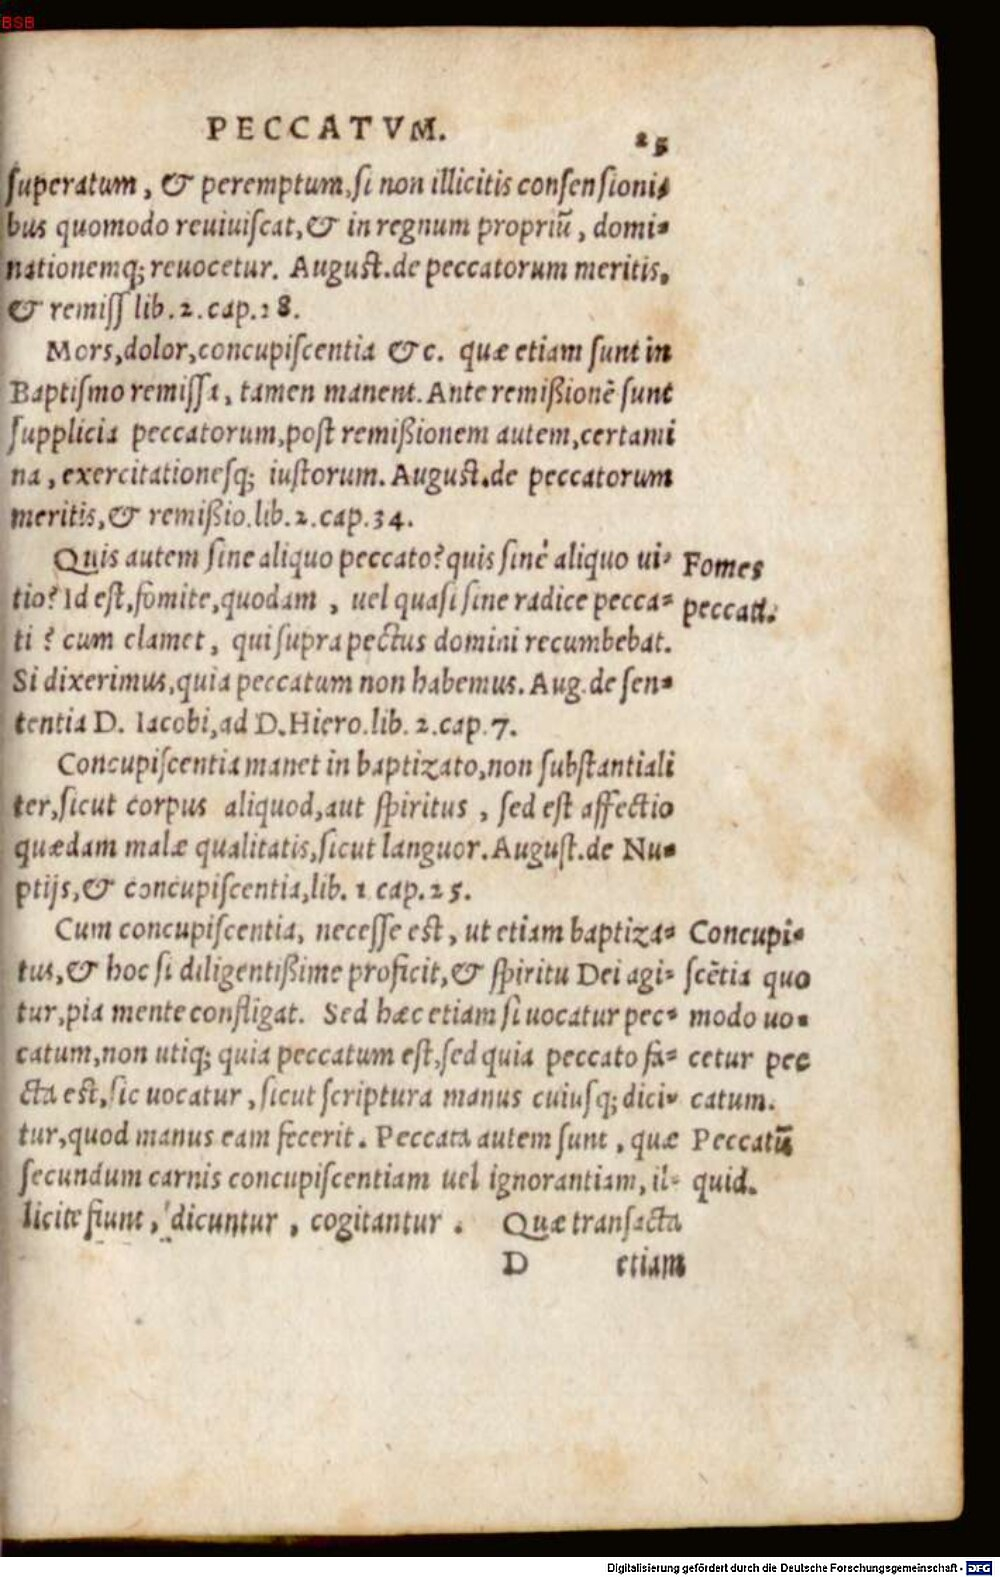 BSB
PECCATVM.
25
superatum, & peremptum, si non illicitis consensioni-
bus quomodo reuiuiscat, & in regnum propriũ, domi-
nationemq; reuocetur. August. de peccatorum meritis,
& remiss lib. 2. cap. 28.
Mors, dolor, concupiscentia &c. quæ etiam sunt in
Baptismo remissa, tamen manent. Ante remißionẽ sunt
supplicia peccatorum, post remißionem autem, certami
na, exercitationesq; iustorum. August. de peccatorum
meritis, & remißio. lib. 2. cap. 34.
Quis autem sine aliquo peccato? quis sine aliquo ui-
tio? Id est, fomite, quodam, uel quasi sine radice pecca-
ti? cum clamet, qui supra pectus domini recumbebat.
Si dixerimus, quia peccatum non habemus. Aug. de sen-
tentia D. Iacobi, ad D. Hiero. lib. 2. cap. 7.
Fomes
peccati.
Concupiscentia manet in baptizato, non substantiali
ter, sicut corpus aliquod, aut spiritus, sed est affectio
quædam malæ qualitatis, sicut languor. August. de Nu-
ptijs, & concupiscentia, lib. 1 cap. 25.
Cum concupiscentia, necesse est, ut etiam baptiza-
tus, & hoc si diligentißime proficit, & spiritu Dei agi-
tur, pia mente confligat. Sed hæc etiam si uocatur pec-
catum, non utiq; quia peccatum est, sed quia peccato fa-
cta est, sic uocatur, sicut scriptura manus cuiusq; dici-
tur, quod manus eam fecerit. Peccata autem sunt, quæ
secundum carnis concupiscentiam uel ignorantiam, il-
licite fiunt, dicuntur, cogitantur. Quæ transacta
Concupi-
scẽtia quo
modo uo-
cetur pec
catum.
Peccatũ
quid.
D etiam
Digitalisierung gefördert durch die Deutsche Forschungsgemeinschaft - DFG